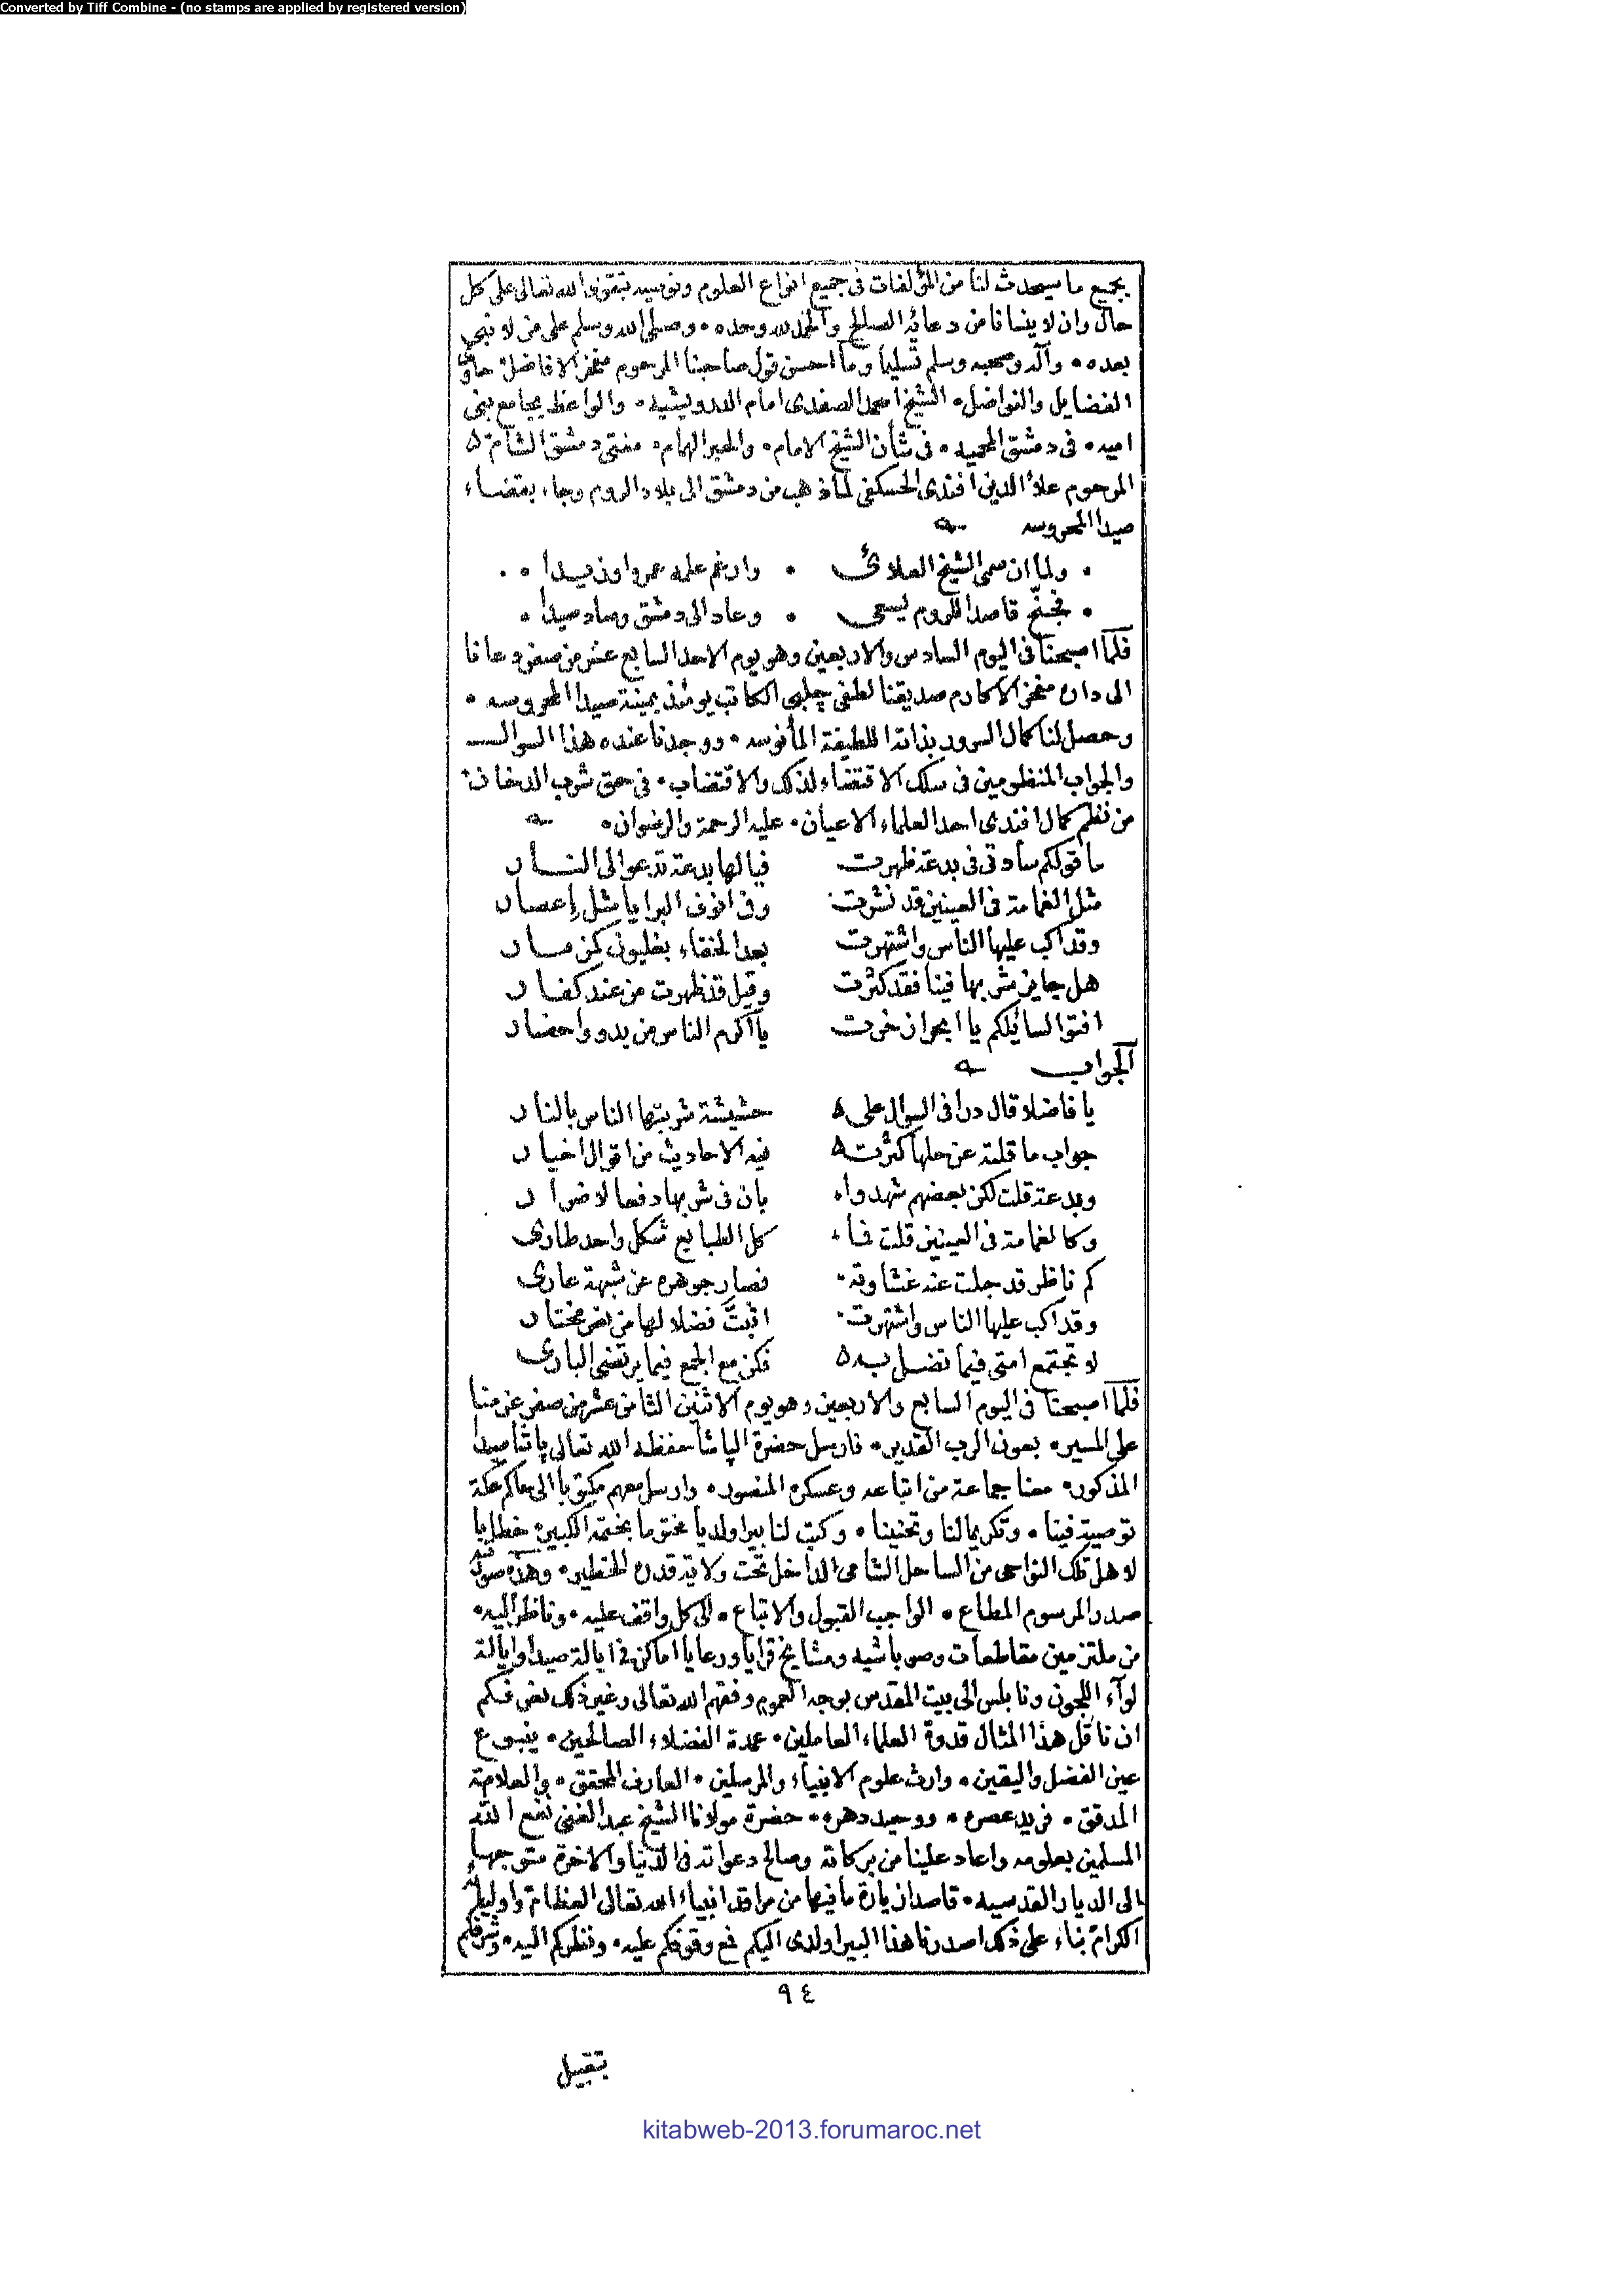 Converted by Tiff Combine - (no stamps are applied by registered version)
بجميع ما سيحدث لنا من المؤلفات فى جميع انواع العلوم ونوصيه بتقوى الله تعالى على كل
حال وان لا ينسانا من دعائه الصالح والحمد لله وحده • وصلى الله وسلم على من لا نبى
بعده • وآله وصحبه وسلم تسليما وما احسن قول صاحبنا المرحوم مفخر الافاضل حاوى
الفضايل والفواضل • الشيخ احمد الصفدى امام الدرويشيه • والواعظ بجامع بنى
اميه • فى دمشق المحميه • فى شأن الشيخ الامام • والحبر الهمام • مفتى دمشق الشآم
المرحوم علاء الدين افندى الحسكفى لما ذهب من دمشق الى بلاد الروم وجاء بقضاء
صيدا المحروسه
• ولما ان سمى الشيخ العلائى • وارغم علمه عمروا وزيدا •
• فجنح قاصدا للروم يسعى • وعاد الى دمشق وصاد صيدا •
فلما اصبحنا فى اليوم السادس والاربعين وهو يوم الاحد السابع عشر من صفر دعانا
الى داره مفخر الاكارم صديقنا لطفى چلبى الكاتب يومئذ بمينة صيدا المحروسه •
وحصل لنا كمال السرور بذاته اللطيفة المأنوسه • ووجدنا عنده هذا السوال
والجواب المنظومين فى سلك الاقتفاء لذلك والاقتضاب • فى حق شرب الدخان
من نظم كمال افندى احد العلماء الاعيان • عليه الرحمة والرضوان •
ما قولكم سادتى فى بدعة ظهرت فيالها بدعة تدعو الى النار
مثل الغمامة فى العينين قد نشرت وفى انوف البرايا مثل إعصار
وقد اكب عليها الناس واشتهرت بعد الخفاء بغليون كمزمار
هل جايز شربها فينا فقد كثرت وقيل قد ظهرت من عند كفار
افتوا لسائيلكم يا ابحرا زخرت يا اكرم الناس من بدو واحضار
الجواب
يا فاضلا قال درا فى السوال على حشيشة شربتها الناس بالنار
جواب ما قلته عن حلها كثرت فيه الاحاديث من اقوال اخيار
وبدعة قلت لكن بعضهم شهدوا بان فى شربها دفعا لاضرار
وكالغمامة فى العينين قلت فما كل الطبايع شكل واحد طارى
كم ناظر قد جلت عنه غشاوته فصار جوهره عن شبهة عارى
وقد اكب عليها الناس واشتهرت اثبتَّ فضلا لها من نص مختار
لا تجتمع امتى فيما تضل به فكن مع الجمع فيما يرتضى البارى
فلما اصبحنا فى اليوم السابع والاربعين وهو يوم الاثنين الثامن عشر من صفر عزمنا
على المسير • بعون الرب القدير • فارسل حضرة الپاشا حفظه الله تعالى پاشا صيدا
المذكور • معنا جماعة من اتباعه وعسكره المنصور • وارسل معهم مكتوبا الى حاكم عكة
توصية فينا • وتكريما لنا وتحنينا • وكتب لنا بيراولديا مختوما بختمه الكبير خطابا
لاهل تلك النواحى من الساحل الشامى الداخل تحت ولاية قدره الخطير • وهذه صورته
صدر المرسوم المطاع • الواجب القبول والاتباع • الى كل واقف عليه • وناظر اليه •
من ملتزمين مقاطعات وصوباشيه ومشايخ قرايا ورعايا اماكن فى ايالة صيدا وايالة
لوآء اللجون ونابلس الى بيت المقدس بوجه العموم وفقهم الله تعالى وغير ذلك نعرفكم
ان ناقل هذا المثال قدوة العلماء العاملين • عمدة الفضلاء الصالحين • ينبوع
عين الفضل واليقين • وارث علوم الانبياء والمرسلين • العارف المحقق • والعلامة
المدقق • فريد عصره • ووحيد دهره • حضرة مولانا الشيخ عبد الغنى نفع الله
المسلمين بعلومه واعاد علينا من بركاته وصالح دعواته فى الدنيا والاخرة متوجها
الى الديار القدسيه • قاصدا زيارة ما فيها من مراقد انبياء الله تعالى العظام واوليائه
الكرام بناء على ذلك اصدرنا هذا البيراولدى اليكم فمع وقوفكم عليه • ونظركم اليه • وتشرفكم
٩٤
بتقبيل
kitabweb-2013.forumaroc.net